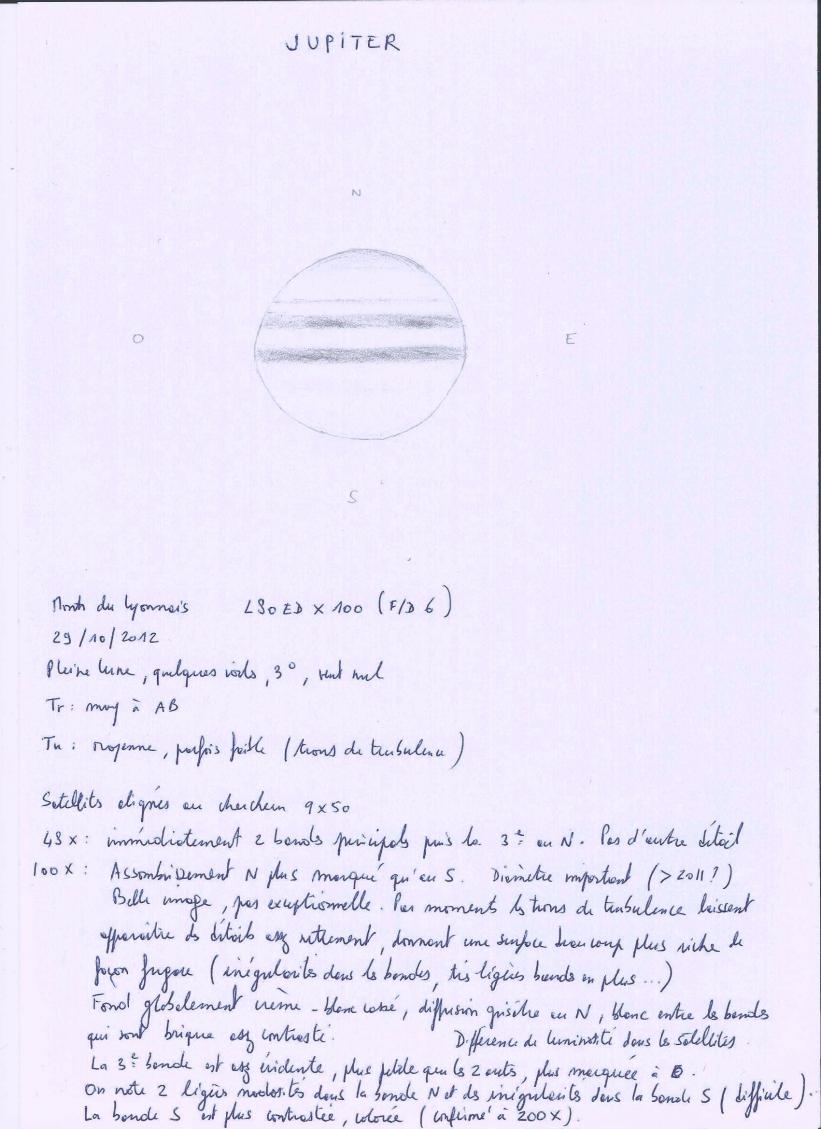 JUPITER
N
O
E
S
Monts du Lyonnais L80 ED x 100 (F/D 6)
29/10/2012
Pleine lune, quelques voiles, 3°, vent nul
Tr : moy à AB
Tu : moyenne, parfois faible (trous de turbulence)
Satellites alignés au chercheur 9x50
48 x : immédiatement 2 bandes principales puis la 3e au N. Pas d'autre détail
100 x : Assombrissement N plus marqué qu'au S. Diamètre important (> 2011 ?)
Belle image, pas exceptionnelle. Par moments les trous de turbulence laissent
apparaître des détails assez nettement, donnant une surface beaucoup plus riche de
façon fugace (irrégularités dans les bandes, très légères bandes en plus ...)
Fond globalement crème - blanc cassé, diffusion grisâtre au N, blanc entre les bandes
qui sont brique assez contrasté. Différence de luminosité dans les satellites.
La 3e bande est assez évidente, plus petite que les 2 autres, plus marquée à
On note 2 légères nodosités dans la bande N et des irrégularités dans la bande S (difficile).
La bande S est plus contrastée, colorée (confirmé à 200X).